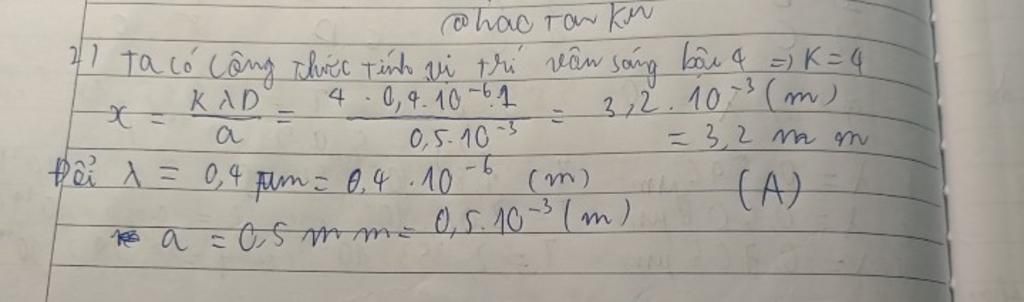 @hacranku
2) Ta có công thức tính vị trí vân sáng bậc 4 => K = 4
x = KλD / a = 4 . 0,4.10⁻⁶.1 / 0,5.10⁻³ = 3,2 . 10⁻³ (m)
= 3,2 mm
Đổi λ = 0,4 μm = 0,4 . 10⁻⁶ (m) (A)
a = 0,5 mm = 0,5.10⁻³ (m)